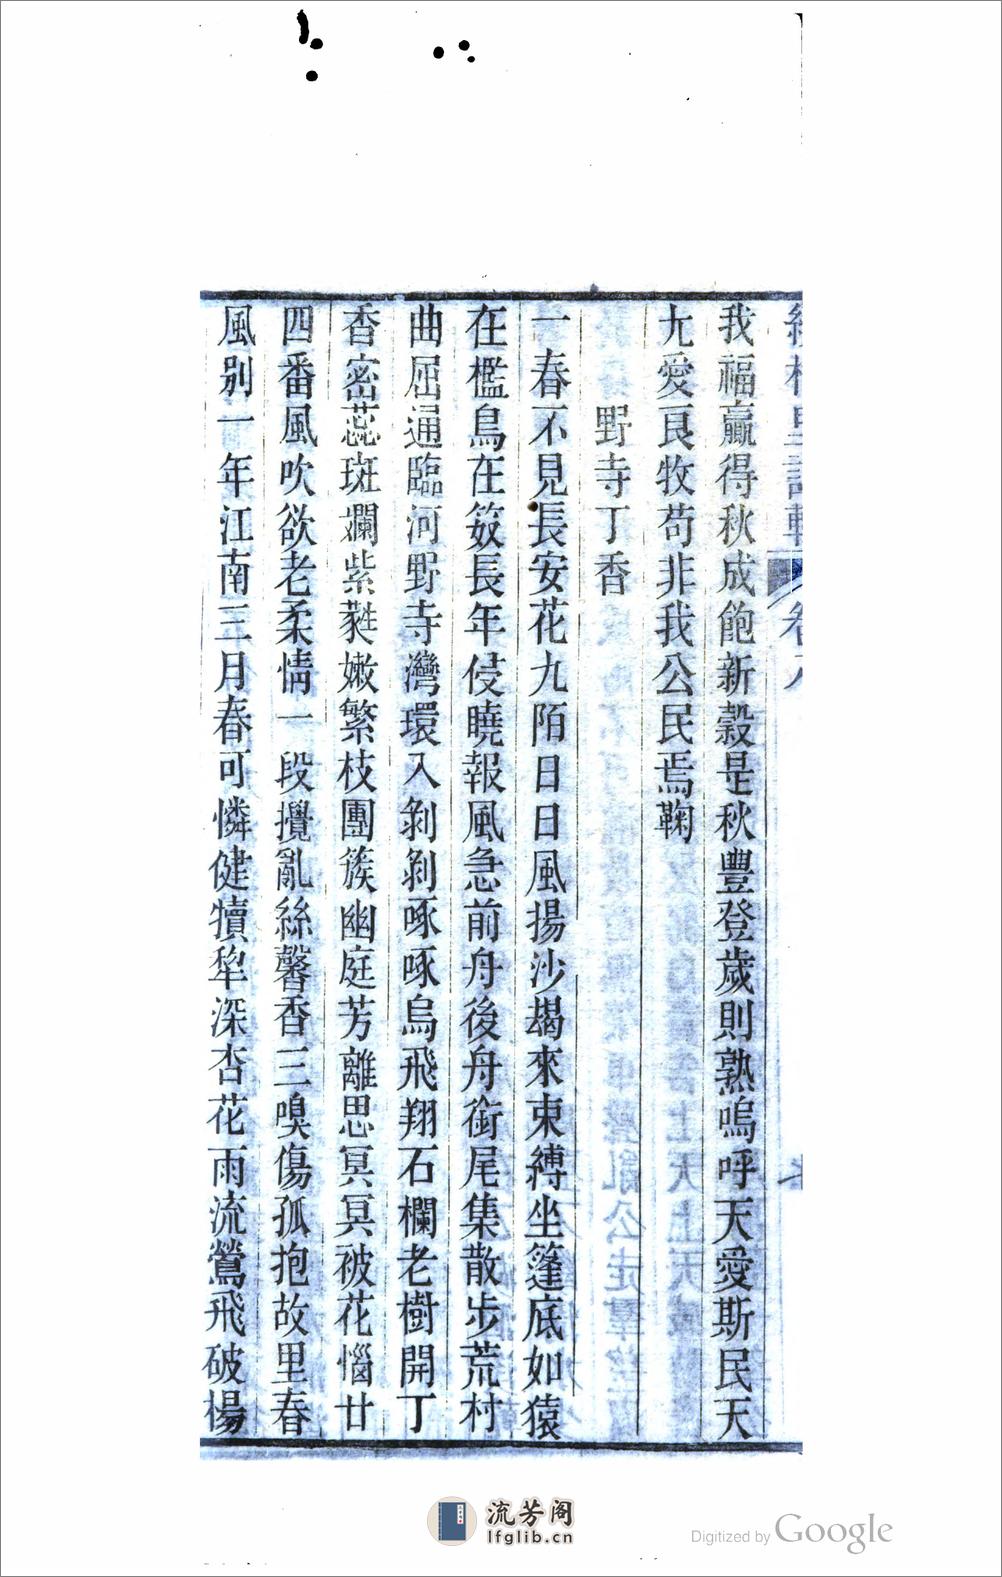 我福贏得秋成飽新穀是秋豐登歲則熟嗚呼天愛斯民天
尢愛良牧苟非我公民焉鞠
野寺丁香
一春不見長安花九陌日日風揚沙朅來束縛坐篷底如猿
在檻鳥在笯長年侵曉報風急前舟後舟銜尾集散步荒村
曲屈通臨河野寺灣環入剝剝啄啄烏飛翔石欄老樹開丁
香密蕊斑斕紫蕤嫩繁枝團簇幽庭芳離思冥冥被花惱廿
四番風吹欲老柔情一段攪亂絲馨香三嗅傷孤抱故里春
風別一年江南三月春可憐健犢犂深杏花雨流鶯飛破楊
流芳阁
lfglib.cn
Digitized by Google